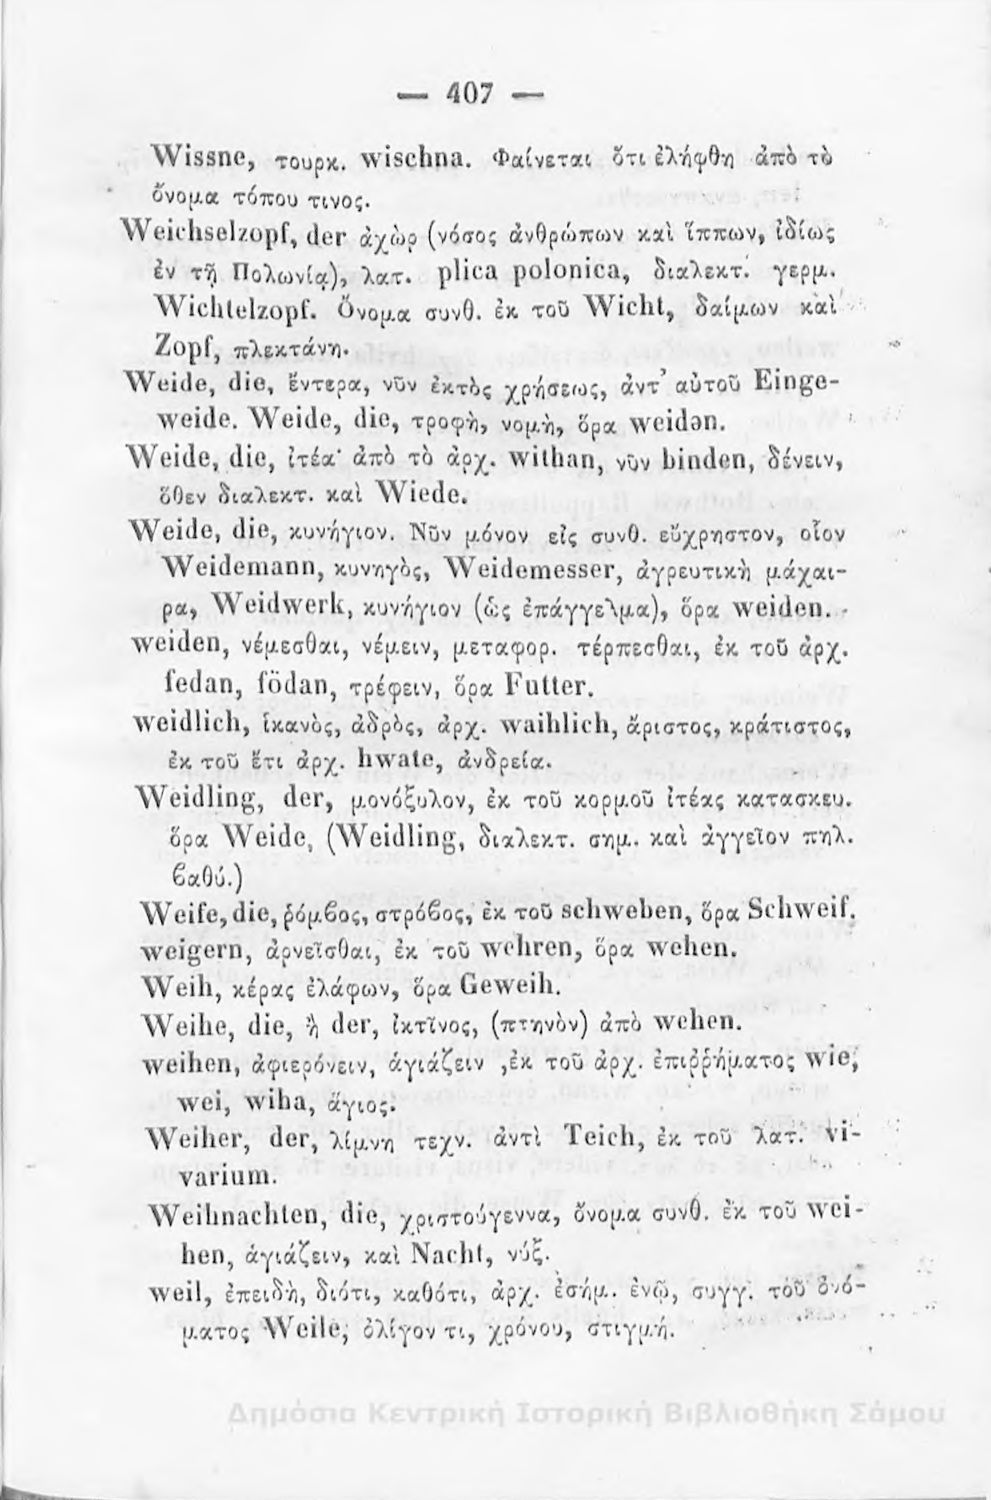 — 407 —
Wissne, τουρκ. wischna. Φαίνεται ὅτι ἐλήφθη ἀπὸ τὸ
ὄνομα τόπου τινος.
Weichselzopf, der ἀχὼρ (νόσος ἀνθρώπων καὶ ἵππων, ἰδίως
ἐν τῇ Πολωνίᾳ), λατ. plica polonica, διαλεκτ. γερμ.
Wichtelzopf. Ὄνομα συνθ. ἐκ τοῦ Wicht, δαίμων καὶ
Zopf, πλεκτάνη.
Weide, die, ἔντερα, νῦν ἐκτὸς χρήσεως, ἀντ' αὐτοῦ Einge-
weide. Weide, die, τροφὴ, νομὴ, ὅρα weidən.
Weide, die, ἰτέα· ἀπὸ τὸ ἀρχ. withan, νῦν binden, δένειν,
ὅθεν διαλεκτ. καὶ Wiede.
Weide, die, κυνήγιον. Νῦν μόνον εἰς συνθ. εὔχρηστον, οἷον
Weidemann, κυνηγὸς, Weidemesser, ἀγρευτικὴ μάχαι-
ρα, Weidwerk, κυνήγιον (ὡς ἐπάγγελμα), ὅρα weiden.
weiden, νέμεσθαι, νέμειν, μεταφορ. τέρπεσθαι, ἐκ τοῦ ἀρχ.
fedan, födan, τρέφειν, ὅρα Futter.
weidlich, ἱκανὸς, ἁδρὸς, ἀρχ. waihlich, ἄριστος, κράτιστος,
ἐκ τοῦ ἔτι ἀρχ. hwate, ἀνδρεία.
Weidling, der, μονόξυλον, ἐκ τοῦ κορμοῦ ἰτέας κατασκευ.
ὅρα Weide, (Weidling, διαλεκτ. σημ. καὶ ἀγγεῖον πηλ.
βαθύ.)
Weife, die, ῥόμβος, στρόβος, ἐκ τοῦ schweben, ὅρα Schweif.
weigern, ἀρνεῖσθαι, ἐκ τοῦ wehren, ὅρα wehen.
Weih, κέρας ἐλάφων, ὅρα Geweih.
Weihe, die, ἢ der, ἰκτῖνος, (πτηνὸν) ἀπὸ wehen.
weihen, ἀφιερόνειν, ἁγιάζειν ,ἐκ τοῦ ἀρχ. ἐπιῤῥήματος wie,
wei, wiha, ἅγιος.
Weiher, der, λίμνη τεχν. ἀντὶ Teich, ἐκ τοῦ λατ. vi-
varium.
Weihnachten, die, χριστούγεννα, ὄνομα συνθ. ἐκ τοῦ wei-
hen, ἁγιάζειν, καὶ Nacht, νύξ.
weil, ἐπειδὴ, διότι, καθότι, ἀρχ. ἐσήμ. ἐνῷ, συγγ. τοῦ ὀνό-
ματος Weile, ὀλίγον τι, χρόνου, στιγμή.
Δημόσια Κεντρική Ιστορική Βιβλιοθήκη Σάμου